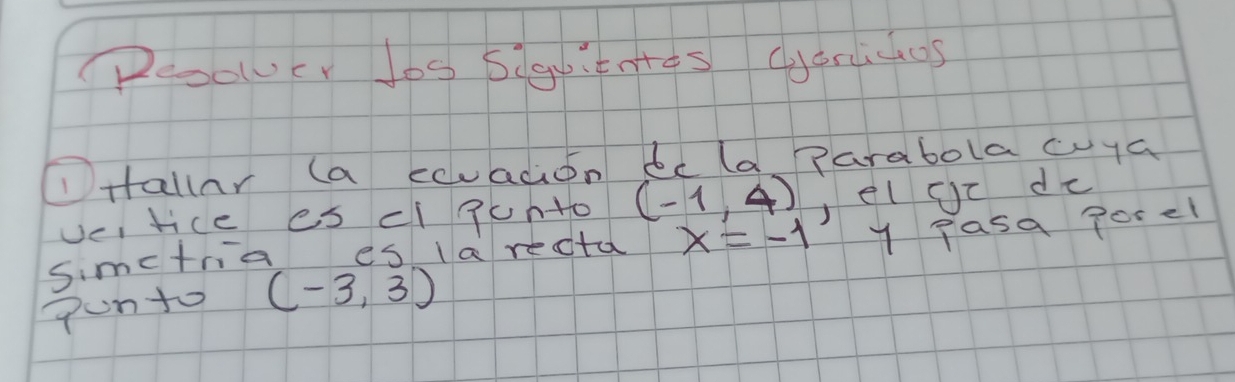 Resolver los Siguientes ejercicios
① Hallar la ecuación de la Parabola cuya
vertice es el Punto (-1, 4), el eje de
simetria es la recta x = -1 y Pasa Por el
Punto (-3, 3)